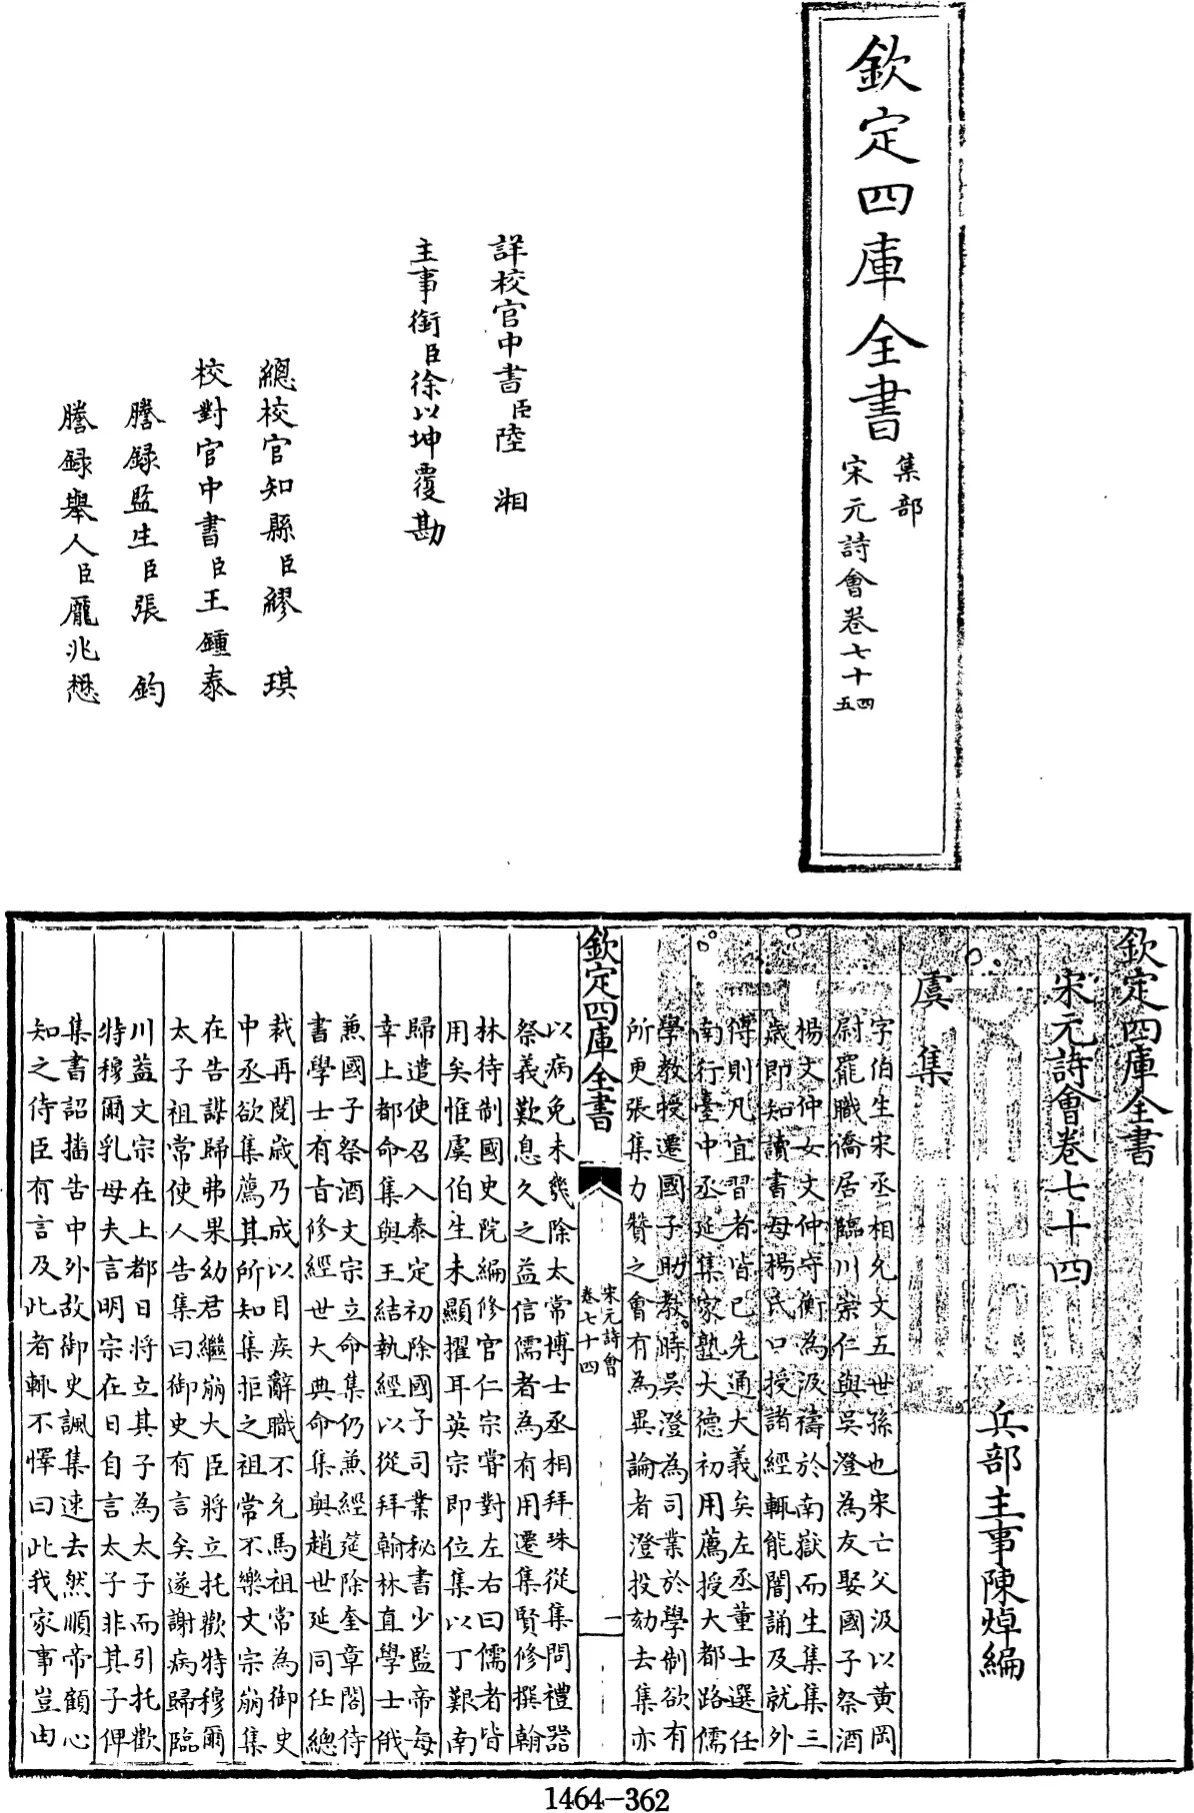 欽定四庫全書
集部
宋元詩會卷七十四
五
詳校官中書臣陸湘
主事銜臣徐以坤覆勘
總校官知縣臣繆琪
校對官中書臣王鍾泰
謄録監生臣張鈞
謄録舉人臣龎兆懋
欽定四庫全書
宋元詩會卷七十四
兵部主事陳焯編
虞集
字伯生宋丞相允文五世孫也宋亡父汲以黄岡
尉罷職僑居臨川崇仁與吳澄為友娶國子祭酒
楊文仲女文仲守衡為汲禱於南嶽而生集集三
歲即知讀書母楊氏口授諸經輒能闇誦及就外
傅則凡宜習者皆已先通大義矣左丞董士選任
南行臺中丞延集家塾大德初用薦授大都路儒
學教授遷國子助教時吳澄為司業於學制欲有
所更張集力贊之會有為異論者澄投劾去集亦
欽定四庫全書
宋元詩會
卷七十四
一
以病免未幾除太常博士丞相拜珠從集問禮器
祭義歎息久之益信儒者為有用遷集賢修撰翰
林待制國史院編修官仁宗嘗對左右曰儒者皆
用矣惟虞伯生未顯擢耳英宗即位集以丁艱南
歸遣使召入泰定初除國子司業秘書少監帝每
幸上都命集與王結執經以從拜翰林直學士俄
兼國子祭酒文宗立命集仍兼經筵除奎章閣侍
書學士有旨修經世大典命集與趙世延同任總
裁再閱歲乃成以目疾辭職不允馬祖常為御史
中丞欲集薦其所知集拒之祖常不樂文宗崩集
在告謀歸弗果幼君繼崩大臣將立托歡特穆爾
太子祖常使人告集曰御史有言矣遂謝病歸臨
川蓋文宗在上都日將立其子為太子而引托歡
特穆爾乳母夫言明宗在日自言太子非其子俾
集書詔播告中外故御史諷集速去然順帝顧心
知之侍臣有言及此者輒不懌曰此我家事豈由
1464-362